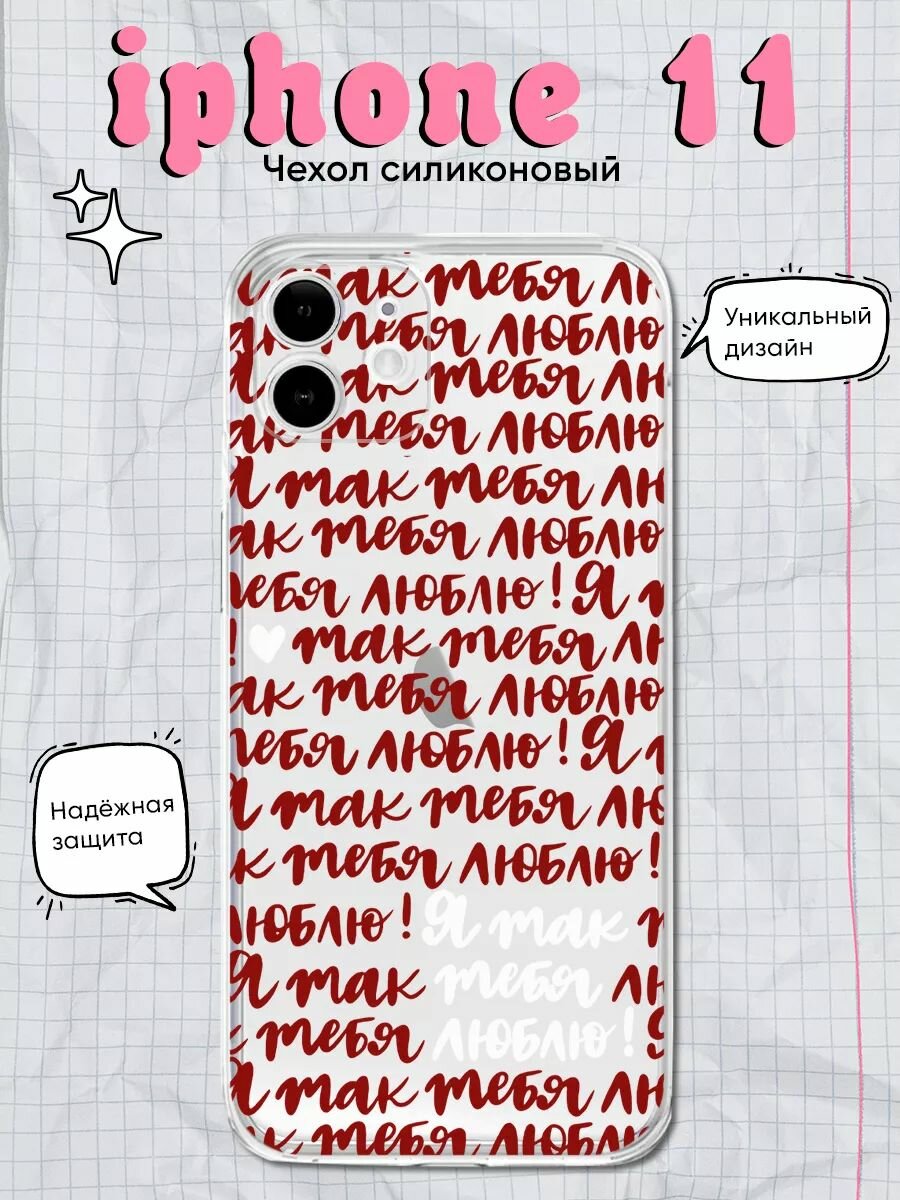 iphone 11
Чехол силиконовый
Уникальный
дизайн
Надёжная
защита
так тебя
тебя люблю
так тебя
тебя люблю
Я так тебя
так тебя люблю
тебя люблю! Я
! так тебя
так тебя люблю
тебя люблю! Я
Я так тебя
тебя люблю!
люблю! Я так
Я так тебя
тебя люблю!
Я так тебя
тебя люблю